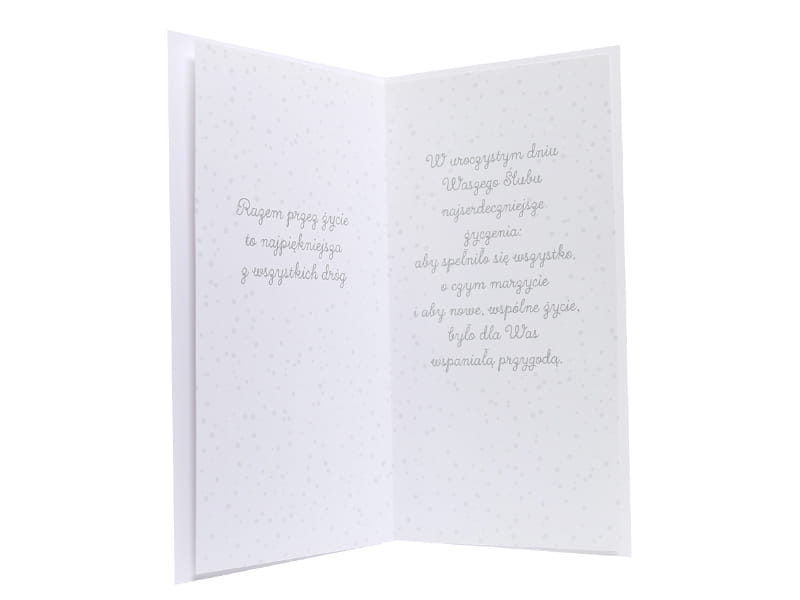 Razem przez życie
to najpiękniejsza
z wszystkich dróg
W uroczystym dniu
Waszego Ślubu
najserdeczniejsze
życzenia:
aby spełniło się wszystko,
o czym marzycie
i aby nowe, wspólne życie,
było dla Was
wspaniałą przygodą.